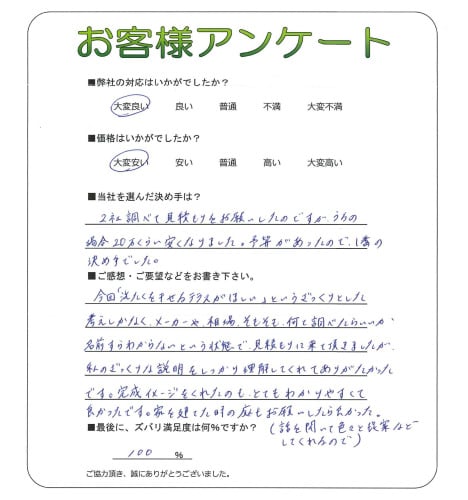 お客様アンケート
■弊社の対応はいかがでしたか？
大変良い 良い 普通 不満 大変不満
■価格はいかがでしたか？
大変安い 安い 普通 高い 大変高い
■当社を選んだ決め手は？
2社調べて見積もりをお願いしたのですが、うちの
場合20万くらい安くなりました。予算があったので、1番の
決め手でした。
■ご感想・ご要望などをお書き下さい。
今回「洗たくをほせるテラスがほしい」というざっくりとした
考えしかなく、メーカーや、相場、そもそも、何て調べたらいいか
名前すらわからないという状態で、見積もりに来て頂きましたが、
私のざっくりな説明をしっかり理解してくれてありがたかった
です。完成イメージをくれたのも、とてもわかりやすくて
良かったです。家を建てた時の庭もお願いしたら良かった。
(話を聞いて色々と提案など
してくれるので)
■最後に、ズバリ満足度は何%ですか？
100 %
ご協力頂き、誠にありがとうございました。